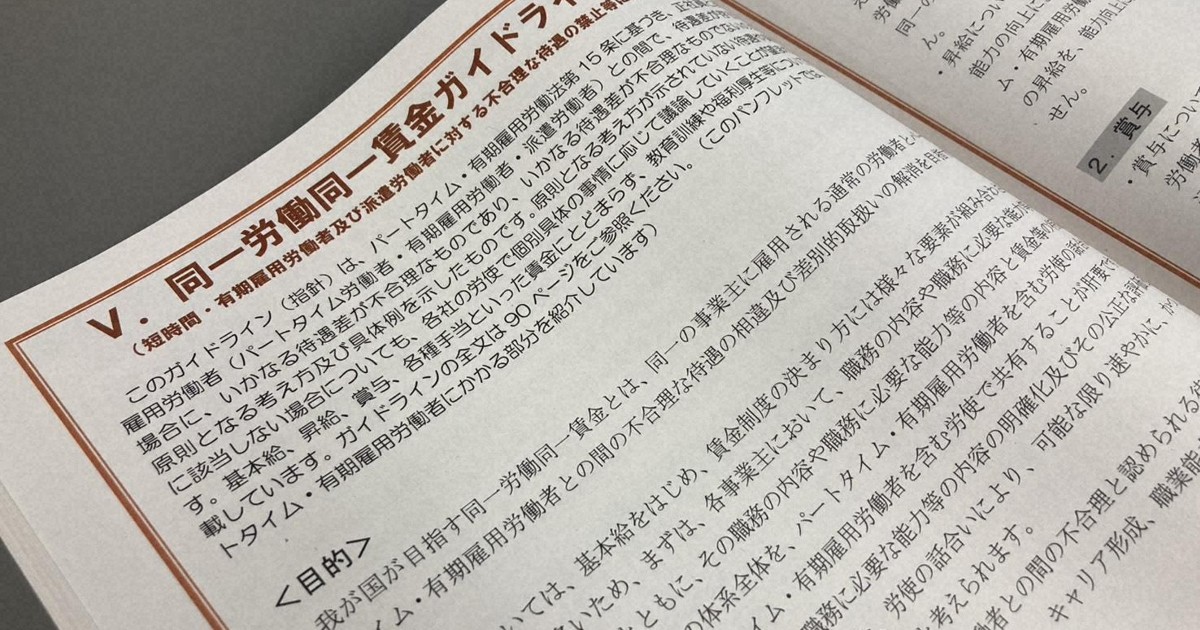 V. 同一労働同一賃金ガイドライ
（短時間・有期雇用労働者及び派遣労働者に対する不合理な待遇の禁止等に
このガイドライン（指針）は、パートタイム・有期雇用労働法第15条に基づき、正社員
雇用労働者（パートタイム労働者・有期雇用労働者・派遣労働者）との間で、待遇差が
場合に、いかなる待遇差が不合理なものであり、いかなる待遇差が不合理なものでない
原則となる考え方及び具体例を示したものです。原則となる考え方が示されていない待遇
に該当しない場合についても、各社の労使で個別具体の事情に応じて議論していくことが
す。基本給、昇給、賞与、各種手当といった賃金にとどまらず、教育訓練や福利厚生等につ
載しています。ガイドラインの全文は90ページをご参照ください。（このパンフレットでは
トタイム・有期雇用労働者にかかる部分を紹介しています）
＜目的＞
我が国が目指す同一労働同一賃金とは、同一の事業主に雇用される通常の労働者と
イム・有期雇用労働者との間の不合理な待遇の相違及び差別的取扱いの解消を目指
いては、基本給をはじめ、賃金制度の決まり方には様々な要素が組み合わ
いため、まずは、各事業主において、職務の内容や職務に必要な能力
ともに、その職務の内容や職務に必要な能力等の内容と賃金等の
の体系全体を、パートタイム・有期雇用労働者を含む労使の話
イム・有期雇用労働者を含む労使で共有することが肝要で
職務に必要な能力等の内容の明確化及びその公正な評
労使の話合いにより、可能な限り速やかに、
も考えられます。
働者との間の不合理と認められる待
キャリア形成、職業能
同一の
ん。
・昇給につい
能力の向上に
ム・有期雇用労働
の昇給を、能力向上に
せん。
2. 賞与
・賞与につ
労働者